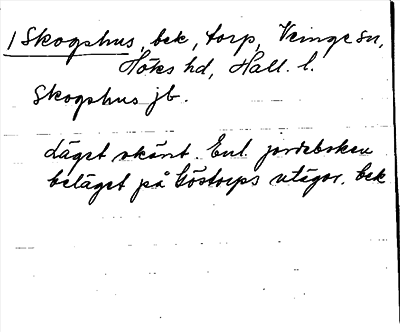 1 Skogshus, bek, torp, Veinge sn,
Höks hd, Hall. l.
Skogshus jb.
Läget okänt. Enl. jordeboken
beläget på Göstorps utägor. bek